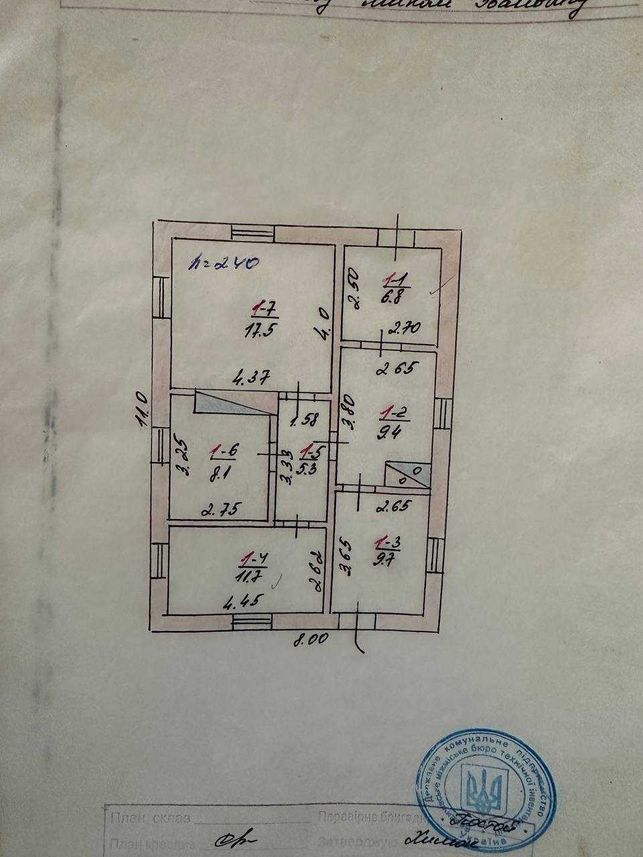 h=2.40
1-1
6.8
2.50
2.70
1-7
17.5
4.0
4.37
2.65
3.80
1-2
9.4
11.0
1.58
1-6
8.1
3.25
2.75
1-5
5.3
3.33
2.65
1-3
9.7
3.65
1-4
11.7
2.62
4.45
8.00
Державне комунальне підприємство
міжміське бюро технічної інвентаризації
Україна
План склав
Перевірив бригадир
План креслив
Затверджую